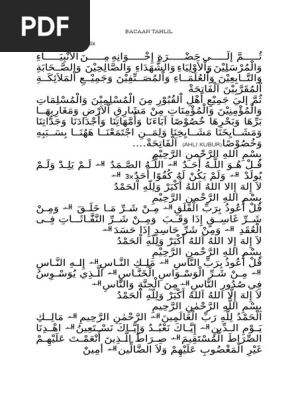 PDF
BACAAN TAHLIL
ثُـــمَّ إِلَـــى حَضْـــرَةِ إِخْـــوَانِهِ مِـــنَ الْأَنْبِيَـــاءِ
وَالْمُرْسَلِيْنَ وَالْأَوْلِيَاءِ وَالشُّهَدَاءِ وَالصَّالِحِيْنَ وَالصَّحَابَةِ
وَالتَّـابِعِيْنَ وَالْعُلَمَـاءِ وَالْمُصَنِّفِيْنَ وَجَمِيْـعِ الْمَلَائِكَـةِ
الْمُقَرَّبِيْنَ الْفَاتِحَةْ
ثُمَّ إِلَىَ جَمِيْعِ أَهْلِ الْقُبُوْرِ مِنَ الْمُسْلِمِيْنَ وَالْمُسْلِمَاتِ
وَالْمُؤْمِنِيْنَ وَالْمُؤْمِنَاتِ مِنْ مَشَارِقِ الْأَرْضِ وَمَغَارِبِهَـا
بَرِّهَا وَبَحْرِهَا خُصُوْصًا آبَاءَنَا وَأُمَّهَاتِنَا وَأَجْدَادَنَا وَجَدَّاتِنَا
وَمَشَـايِخَنَا مَشَـايِخِنَا وَلِمَـنِ اجْتَمَعْنَـا هَهُنَـا بِسَـبَبِهِ
وَخُصُوْصًا (AHLI KUBUR) اَلْفَاتِحَةْ....
بِسْمِ اللَّهِ الرَّحْمنِ الرَّحِيْمِ
قُلْ هُـوَ اللَّـهُ أَحَـدٌ اللَّـهُ الصَّمَـدُ لَـمْ يَلِـدْ وَلَـمْ
يُولَدْ وَلَمْ يَكُنْ لَهُ كُفُوًا أَحَدٌ 3x
لَا إِلهَ إِلَّا اللهُ اَللهُ أَكْبَرُ وَلِلَّهِ الْحَمْدُ
بِسْمِ اللَّهِ الرَّحْمنِ الرَّحِيْمِ
قُلْ أَعُوذُ بِرَبِّ الْفَلَقِ مِـنْ شَـرِّ مَـا خَلَـقَ وَمِـنْ
شَـرِّ غَاسِـقٍ إِذَا وَقَـبَ وَمِـنْ شَـرِّ النَّفَّاثَـاتِ فِـى
الْعُقَدِ وَمِنْ شَرِّ حَاسِدٍ إِذَا حَسَدَ
لَا إِلهَ إِلَّا اللهُ اَللهُ أَكْبَرُ وَلِلَّهِ الْحَمْدُ
بِسْمِ اللَّهِ الرَّحْمنِ الرَّحِيْمِ
قُلْ أَعُوذُ بِرَبِّ النَّاسِ مَلِـكِ النَّـاسِ إِلـهِ النَّـاسِ
مِـنْ شَـرِّ الْوَسْـوَاسِ الْخَنَّـاسِ الَّـذِي يُوَسْـوِسُ
فِى صُدُورِ النَّاسِ مِنَ الْجِنَّةِ وَالنَّاسِ
لَا إِلهَ إِلَّا اللهُ اَللهُ أَكْبَرُ وَلِلَّهِ الْحَمْدُ
بِسْمِ اللَّهِ الرَّحْمنِ الرَّحِيمِ
الْحَمْدُ لِلَّهِ رَبِّ الْعَالَمِينَ الرَّحْمنِ الرَّحِيمِ مَالِـكِ
يَـوْمِ الـدِّينِ إِيَّـاكَ نَعْبُـدُ وَإِيَّـاكَ نَسْـتَعِينُ اهْـدِنَا
الصِّرَاطَ الْمُسْتَقِيمَ صِـرَاطَ الَّـذِينَ أَنْعَمْـتَ عَلَيْهِـمْ
غَيْرِ الْمَغْضُوبِ عَلَيْهِمْ وَلَا الضَّالِّينَ أمِيْنْ